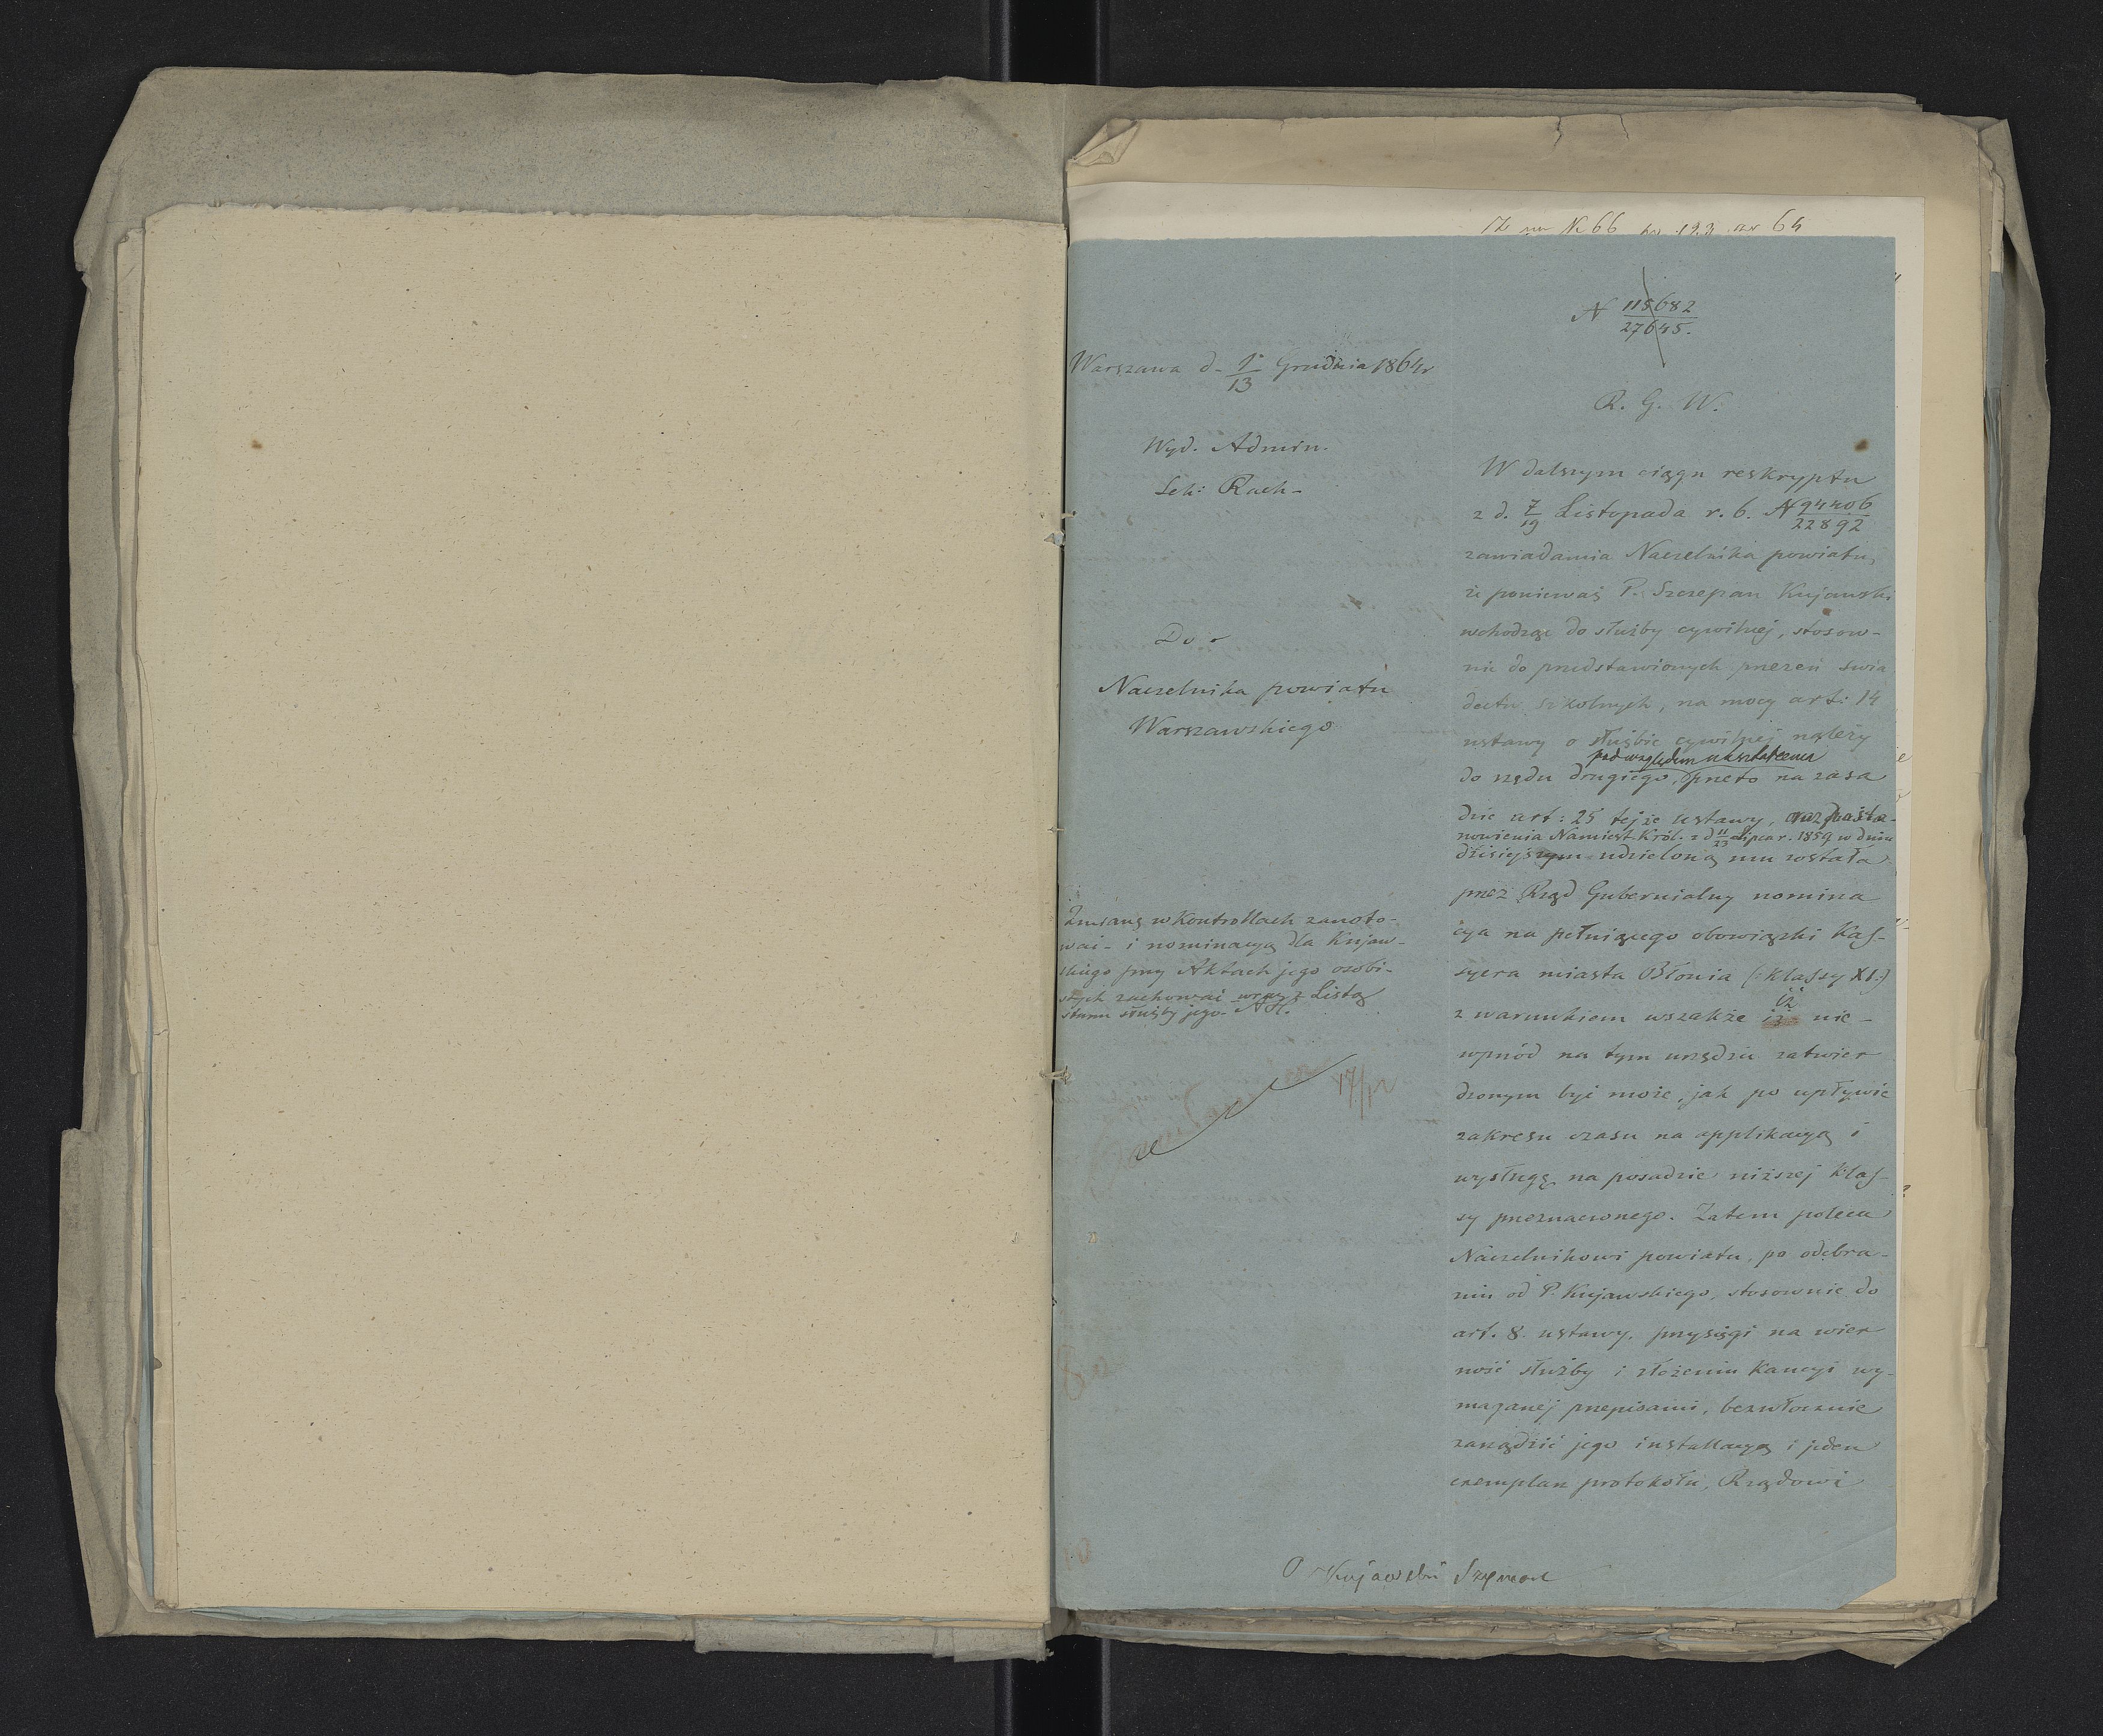 N 115682
27645.
Warszawa d. 1/13 Grudnia 1864 r
R. G. W.
Wyd. Admin.
Sek: Rach-
Do
Naczelnika powiatu
Warszawskiego
Zmianę w Kontrollach zanoto-
wać- i nominacyą dla Kujaw-
skiego przy Aktach jego osobi-
stych zachować wraz z Listą
stanu służby jego-
17/12
W dalszym ciągu reskryptu
z d. 7/19 Listopada r. b. N 94406/22892
zawiadamia Naczelnika powiatu,
że ponieważ P. Szczepan Kujawski
wchodząc do służby cywilnej, stosow-
nie do przedstawionych przezeń świa
dectw szkolnych, na mocy art: 14
ustawy o służbie cywilnej należy
pod względem ukształcenia
do rzędu drugiego, przeto na zasa
dzie art: 25 tejże ustawy, oraz posta-
nowienia Namiest. Król. z d 11/23 Lipca r. 1859 w dniu
dzisiejszym udzieloną mu została
przez Rząd Gubernialny nomina
cya na pełniącego obowiązki Kas-
syera miasta Błonia (: klassy XI:)
z warunkiem wszakże iż nie-
wprzód na tym urzędzie zatwier
dzonym być może, jak po upływie
zakresu czasu na applikacyą i
wysługę na posadzie niższej klas-
sy przeznaczonego. Zatem poleca
Naczelnikowi powiatu, po odebra-
niu od P. Kujawskiego, stosownie do
art. 8. ustawy, przysięgi na wier
ność służby i złożeniu kaucyi wy-
maganej przepisami, bezwłocznie
zarządzić jego installacyą i jeden
exemplarz protokołu, Rządowi
O Kujawski Szczepan